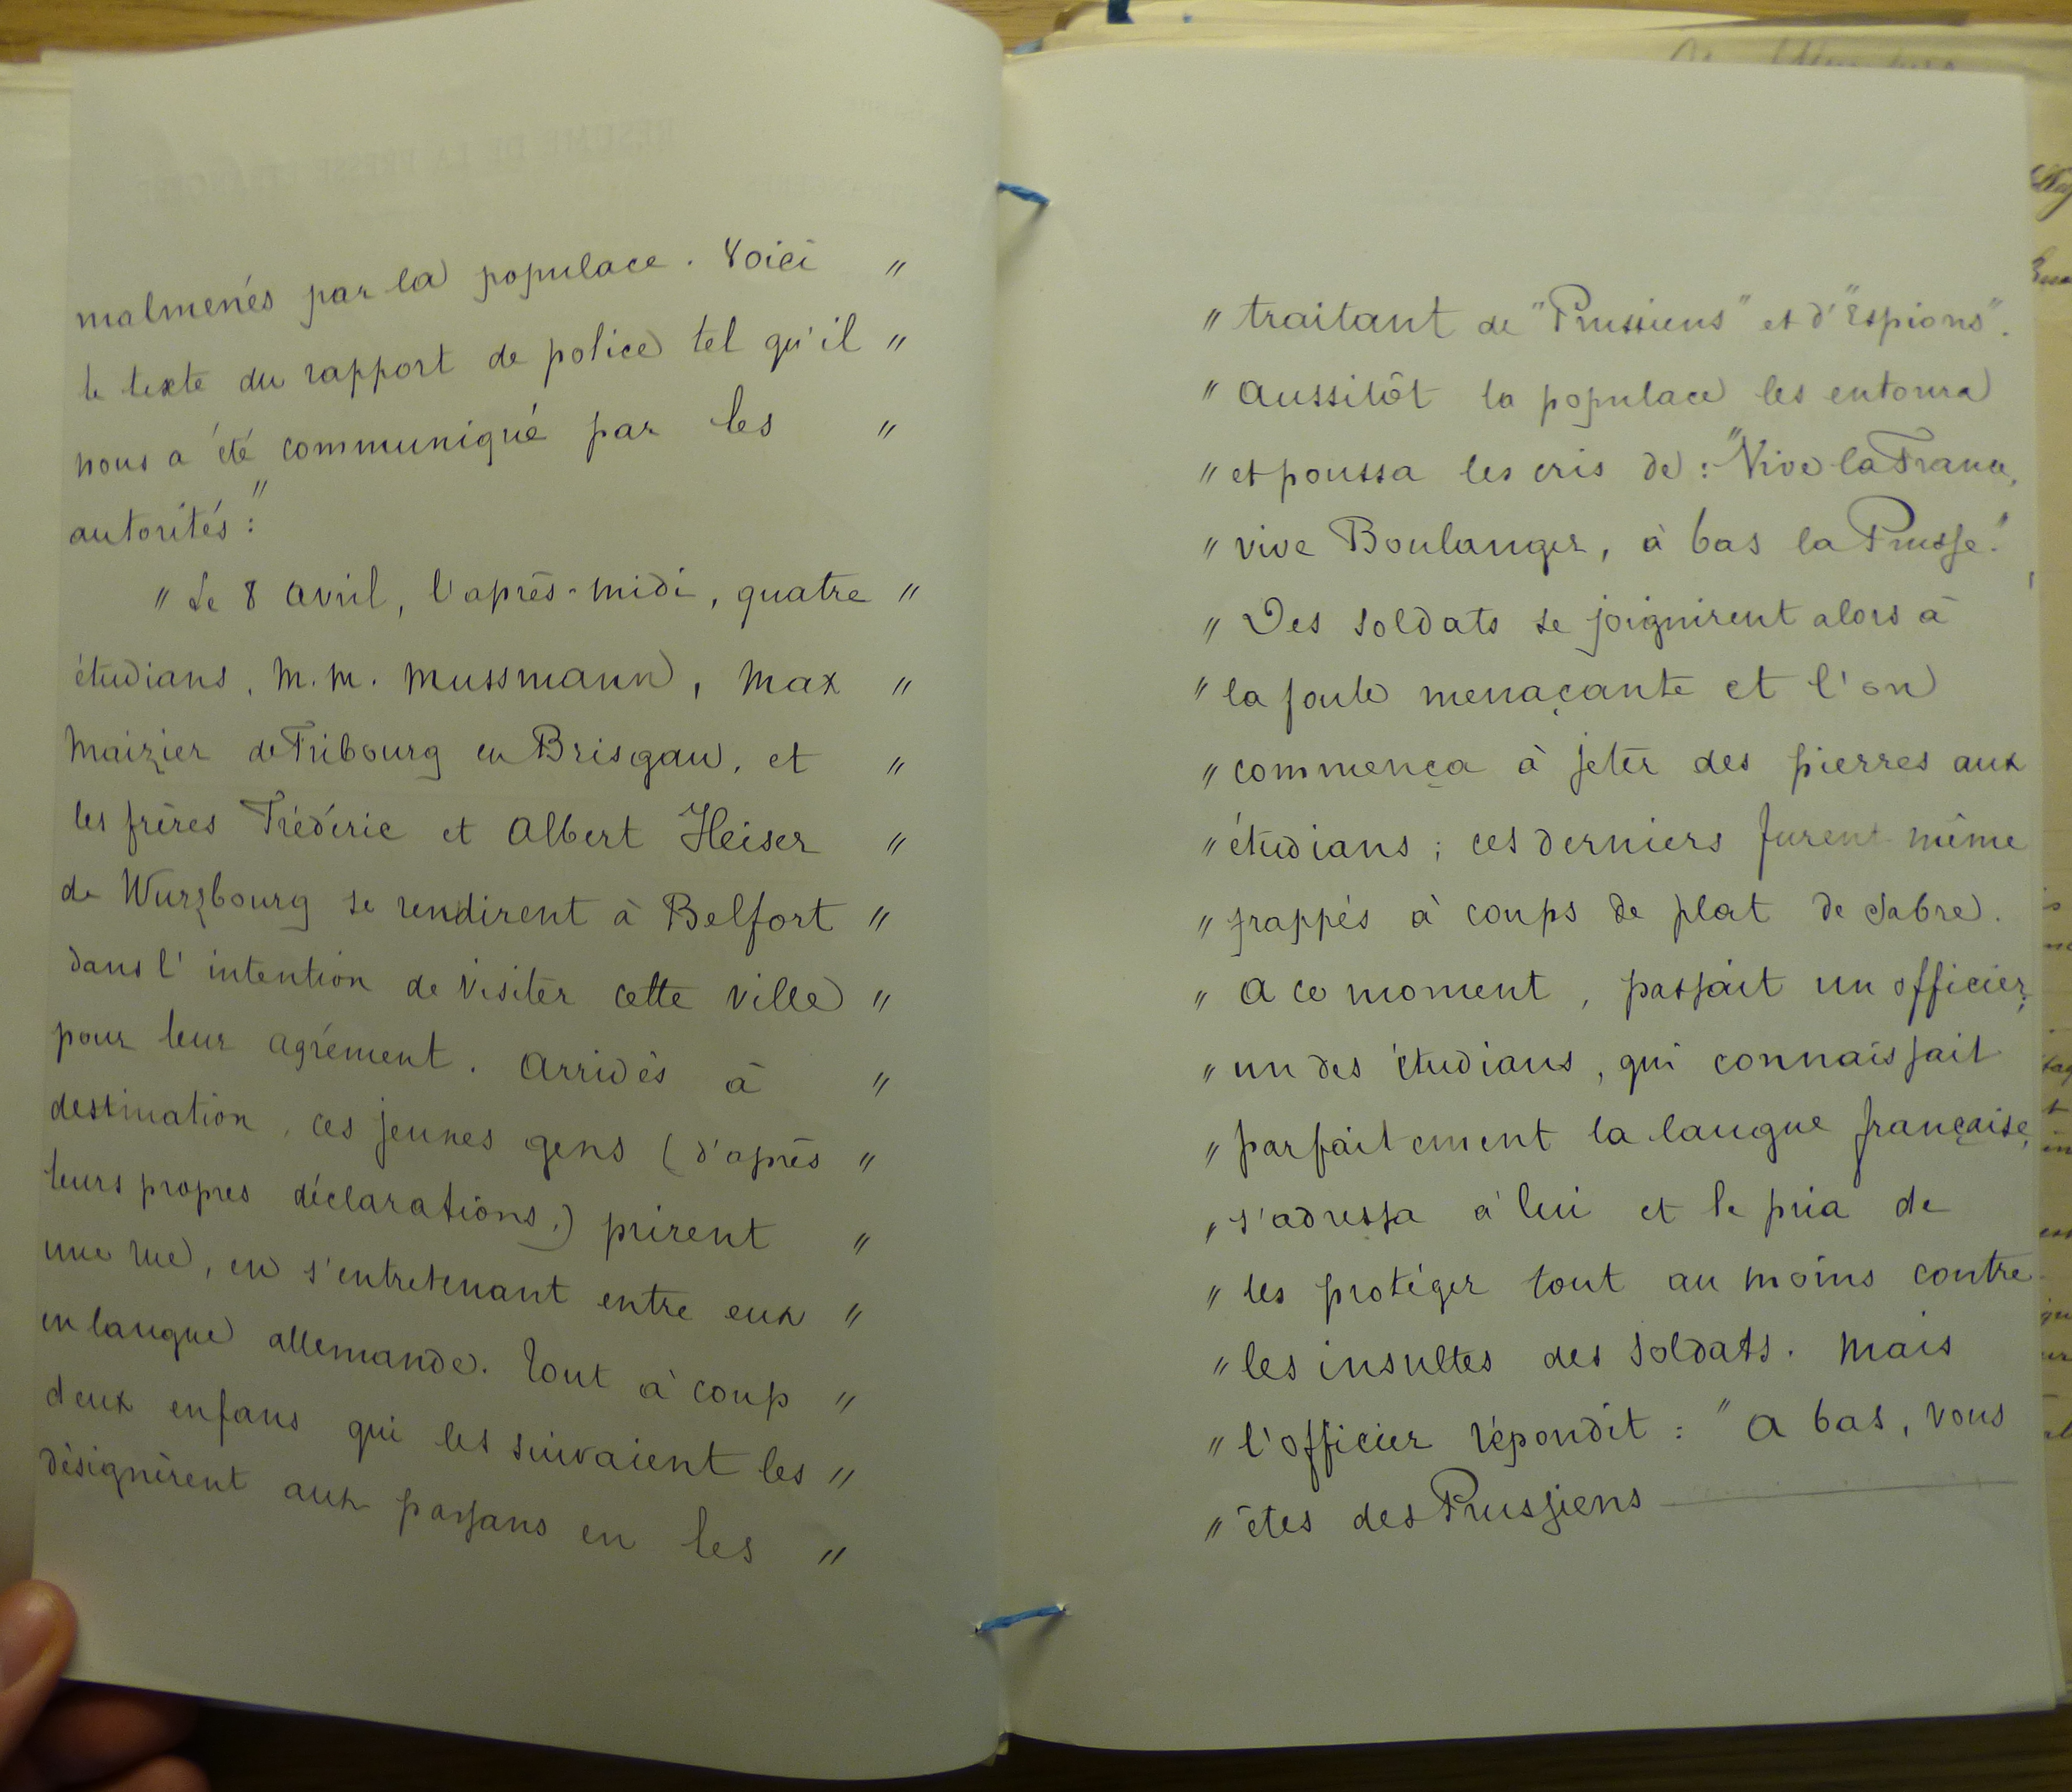 malmenés par la populace. Voici "
le texte du rapport de police tel qu'il "
nous a été communiqué par les "
autorités :"
" Le 8 avril, l'après-midi, quatre "
étudians, M.M. Mussmann, Max "
Maizier de Fribourg en Brisgau, et "
les frères Frédéric et Albert Heiser "
de Wurzbourg se rendirent à Belfort "
dans l'intention de visiter cette ville "
pour leur agrément. Arrivés à "
destination, ces jeunes gens (d'après "
leurs propres déclarations,) prirent "
une rue, en s'entretenant entre eux "
en langue allemande. Tout à coup "
deux enfans qui les suivaient les "
désignèrent aux passans en les "
" traitant de "Prussiens" et d'"Espions".
" Aussitôt la populace les entoura
" et poussa les cris de : "Vive la France,
" vive Boulanger, à bas la Prusse."
" Des soldats se joignirent alors à
" la foule menaçante et l'on
" commença à jeter des pierres aux
" étudians ; ces derniers furent même
" frappés à coups de plat de sabre.
" A ce moment, passait un officier,
" un des étudians, qui connaissait
" parfaitement la langue française,
" s'adressa à lui et le pria de
" les protéger tout au moins contre
" les insultes des soldats. Mais
" l'officier répondit : " A bas, vous
" êtes des Prussiens